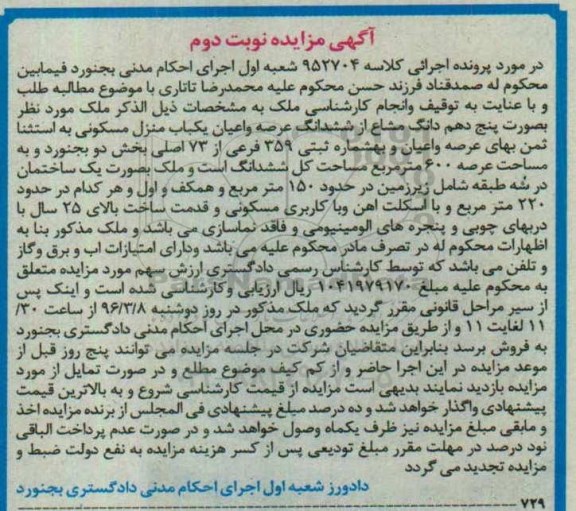 آگهی مزایده نوبت دوم
در مورد پرونده اجرائی کلاسه ۹۵۲۷۰۴ شعبه اول اجرای احکام مدنی بجنورد فیمابین
محکوم له صمدقناد فرزند حسن محکوم علیه محمدرضا تاتاری با موضوع مطالبه طلب
و با عنایت به توقیف وانجام کارشناسی ملک به مشخصات ذیل الذکر ملک مورد نظر
بصورت پنج دهم دانگ مشاع از ششدانگ عرصه واعیان یکباب منزل مسکونی به استثنا
ثمن بهای عرصه واعیان و بهشماره ثبتی ۳۵۹ فرعی از ۷۳ اصلی بخش دو بجنورد و به
مساحت عرصه ۶۰۰ مترمربع مساحت کل ششدانگ است و ملک بصورت یک ساختمان
در سه طبقه شامل زیرزمین در حدود ۱۵۰ متر مربع و همکف و اول و هر کدام در حدود
۲۲۰ متر مربع و با اسکلت اهن وبا کاربری مسکونی و قدمت ساخت بالای ۲۵ سال با
دربهای چوبی و پنجره های الومینیومی و فاقد نماسازی می باشد و ملک مذکور بنا به
اظهارات محکوم له در تصرف مادر محکوم علیه می باشد ودارای امتیازات اب و برق وگاز
و تلفن می باشد که توسط کارشناس رسمی دادگستری ارزش سهم مورد مزایده متعلق
به محکوم علیه مبلغ ۱۰۴۱۹۷۹۱۷۰ ریال ارزیابی وکارشناسی شده است و اینک پس
از سیر مراحل قانونی مقرر گردید که ملک مذکور در روز دوشنبه ۹۶/۳/۸ از ساعت ۳۰/
۱۱ لغایت ۱۱ و از طریق مزایده حضوری در محل اجرای احکام مدنی دادگستری بجنورد
به فروش برسد بنابراین متقاضیان شرکت در جلسه مزایده می توانند پنج روز قبل از
موعد مزایده در این اجرا حاضر و از کم کیف موضوع مطلع و در صورت تمایل از مورد
مزایده بازدید نمایند بدیهی است مزایده از قیمت کارشناسی شروع و به بالاترین قیمت
پیشنهادی واگذار خواهد شد و ده درصد مبلغ پیشنهادی فی المجلس از برنده مزایده اخذ
و مابقی مبلغ مزایده نیز ظرف یکماه وصول خواهد شد و در صورت عدم پرداخت الباقی
نود درصد در مهلت مقرر مبلغ تودیعی پس از کسر هزینه مزایده به نفع دولت ضبط و
مزایده تجدید می گردد
دادورز شعبه اول اجرای احکام مدنی دادگستری بجنورد
۷۲۹